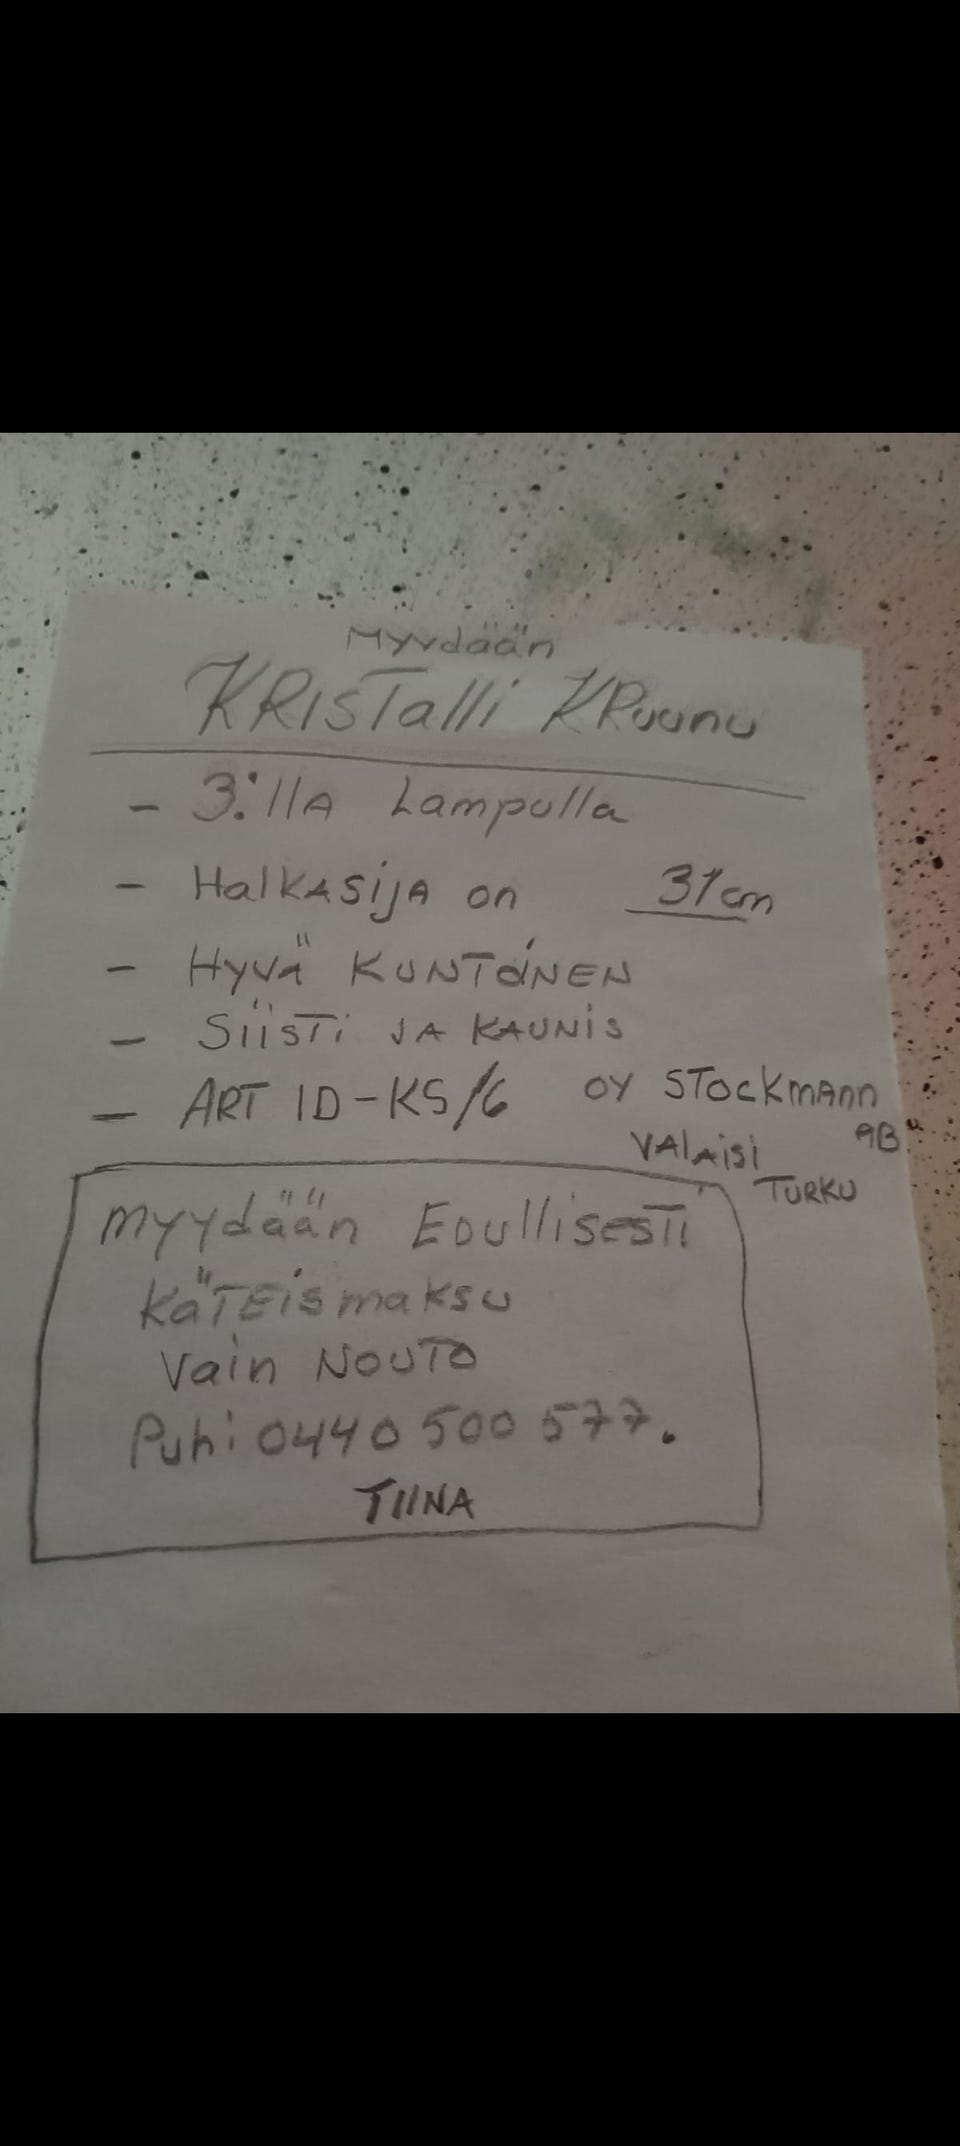 Myydään
KRISTalli KRuunu
- 3:llA Lampulla
- HalKASijA on 31cm
- HYVÄ KUNTOINEN
- SiiSTi JA KAUNiS
- ART ID-KS/6 OY STOCKMANN
AB
VALAiSi
TURKU
Myydään EDullISESTi
KÄTEiSmaksu
Vain NOUTO
Puh: 0440 500 577.
TIINA